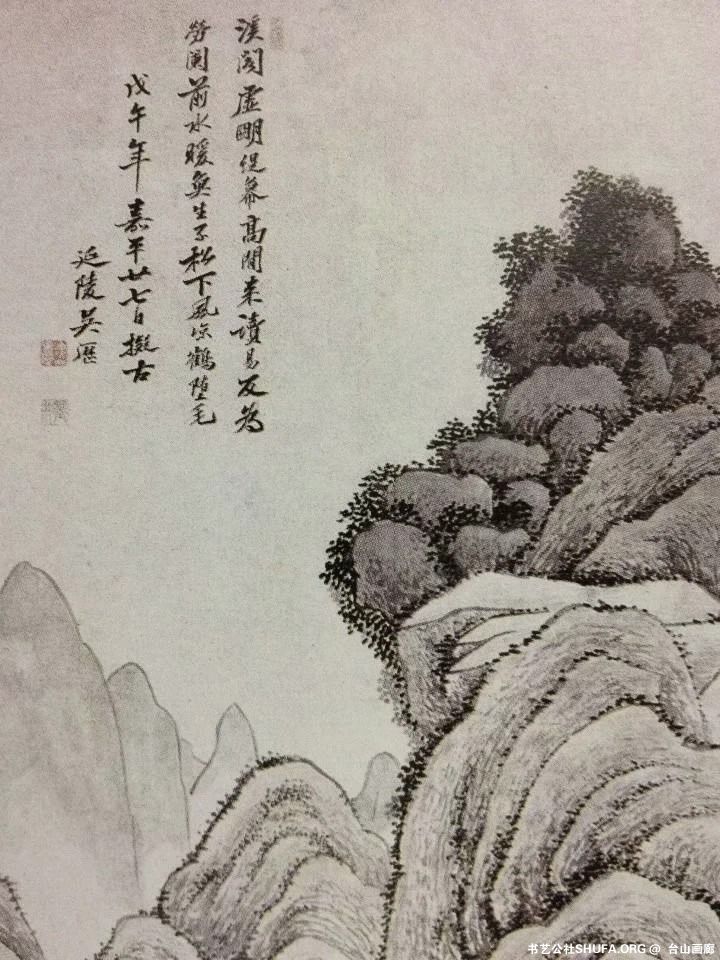 溪閣虛明幕高閒来讀易反為
勞闌前水暖魚生子松下風涼鶴墮毛
戊午年嘉平廿七日擬古
延陵吳歷
书艺公社SHUFA.ORG @ 台山画廊